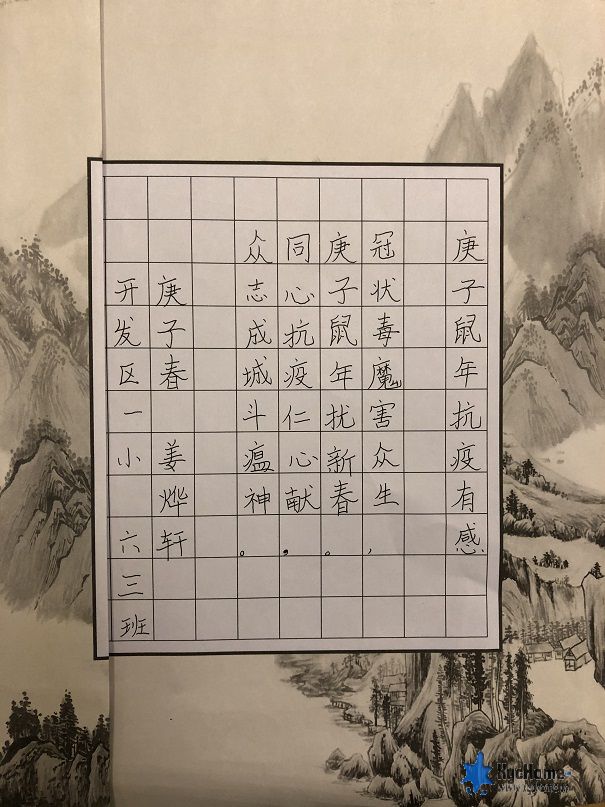 庚子鼠年抗疫有感
冠状毒魔害众生，
庚子鼠年扰新春。
同心抗疫仁心献，
众志成城斗瘟神。
庚子春 姜烨轩
开发区一小 六三班
KycHome